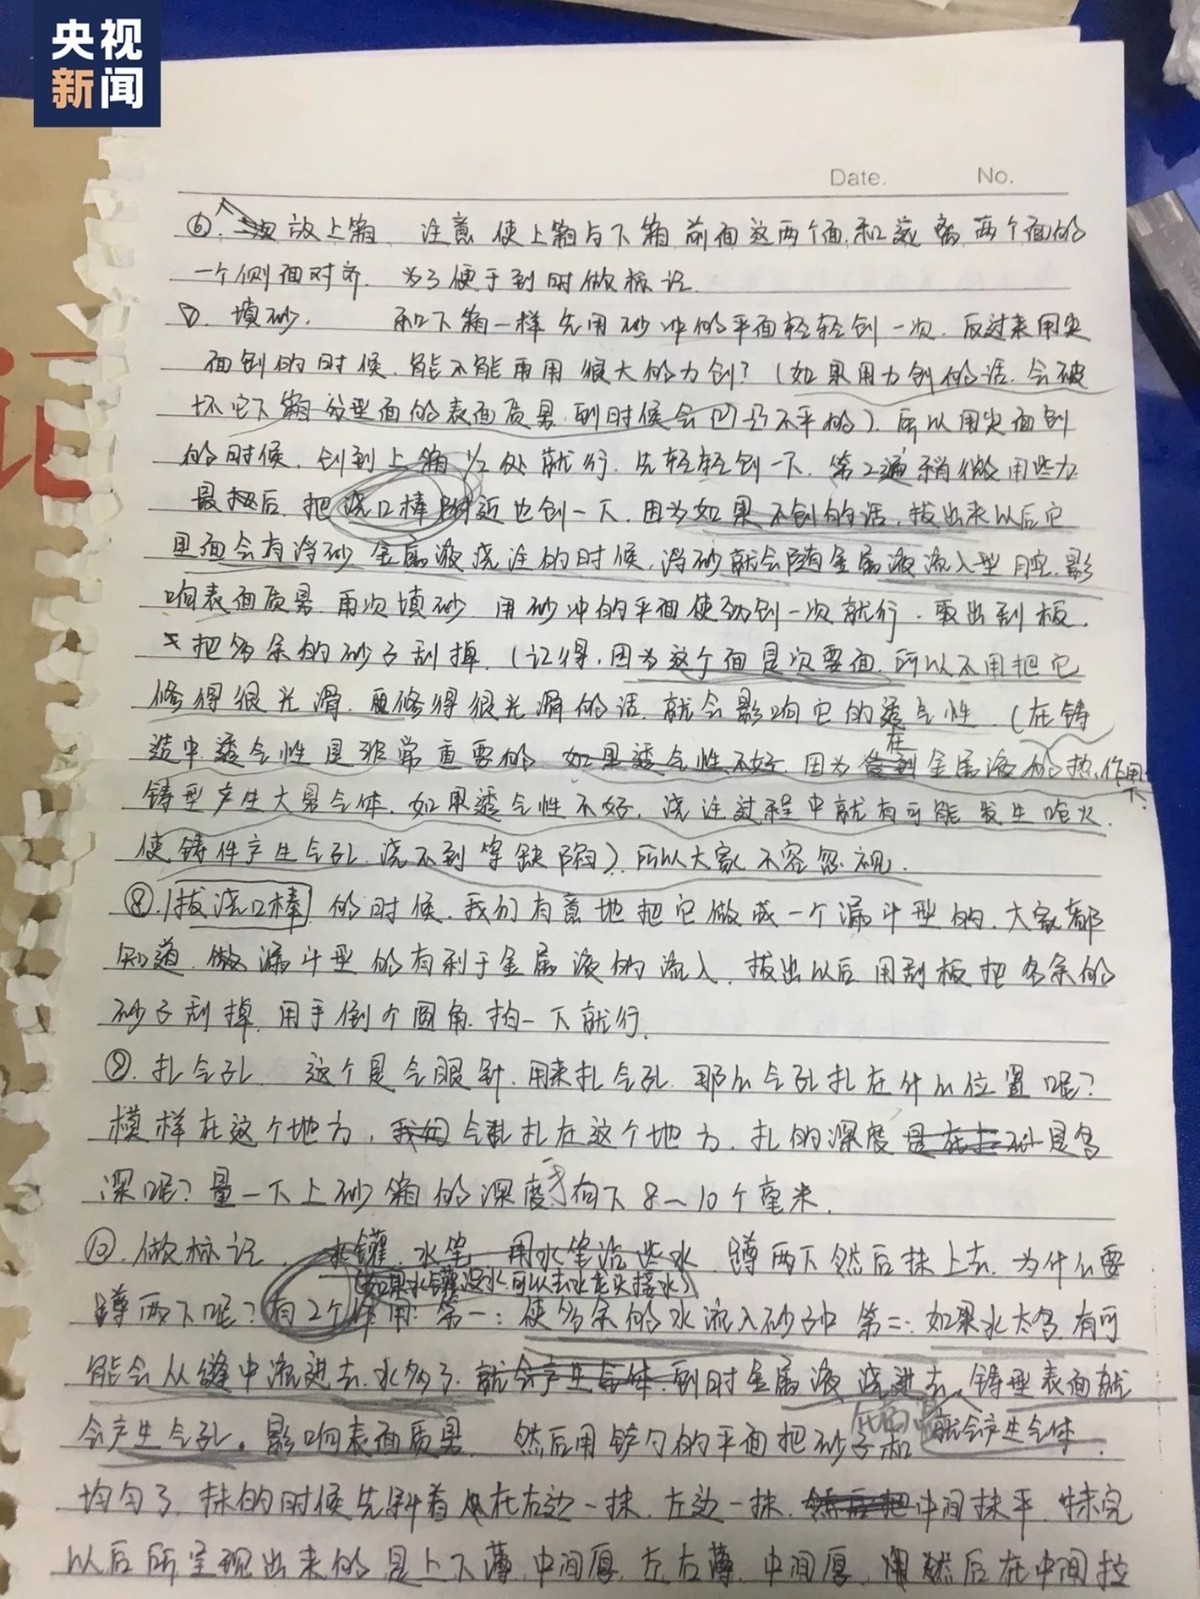 央视
新闻
Date. No.
⑥. 放上箱 注意 使上箱与下箱 前面这两个面,和这 两个面的
一个侧面对齐. 为了便于到时做标记.
⑦. 填砂. 和下箱一样 先用砂冲的平面轻轻创一次. 反过来用尖
面创的时候. 能不能再用 很大的力创? (如果用力创的话. 会破
坏它下箱分型面的表面质量. 到时候会凹凸不平的). 所以用尖面创
的时候. 创到上箱 1/2 处就行. 先轻轻创一下. 第2遍稍微用些力
最后. 把浇口棒附近也创一下. 因为如果不创的话. 拔出来以后它
里面会有浮砂 金属液浇注的时候. 浮砂就会随金属液流入型腔.影
响表面质量. 再次填砂. 用砂冲的平面使劲创一次就行. 取出刮板.
把多余的砂子刮掉. (记得. 因为这个面是次要面. 所以不用把它
修得很光滑. 修得很光滑的话. 就会影响它的透气性. (在铸
造中透气性是非常重要的 如果透气性不好. 因为 在 金属液的热作用下
铸型产生大量气体. 如果透气性不好. 浇注过程中就有可能发生呛火.
使铸件产生气孔. 浇不到等缺陷). 所以大家不容忽视.
⑧. 拔浇口棒 的时候. 我们有意地把它做成一个漏斗型的. 大家都
知道. 做漏斗型的有利于金属液的流入. 拔出以后用刮板把多余的
砂子刮掉. 用手倒个圆角. 拍一下就行.
⑨. 扎气孔. 这个是气眼针. 用来扎气孔. 那么气孔扎在什么位置呢?
模样在这个地方. 我们 气孔扎在这个地方. 扎的深度 是多
深呢? 量一下上砂箱的深度. 向下 8~10个毫米.
⑩. 做标记. 水罐. 水笔 用水笔沾些水. 蹲两下然后抹上去. 为什么要
(如果水罐没水.可以去水龙头接水)
蹲两下呢? 有2个作用: 第一: 使多余的水流入砂子中 第二: 如果水太多. 有可
能会从缝中流进去. 水多了. 就会产生气体. 到时金属液浇进去. 铸型表面就
会产生气孔. 影响表面质量. 然后用铲勺的平面把砂子和 就会产生气体.
均匀了. 抹的时候先斜着 在右边一抹. 左边一抹. 中间抹平. 抹完
以后所呈现出来的是上下薄. 中间厚. 左右薄. 中间厚. 然后在中间拉